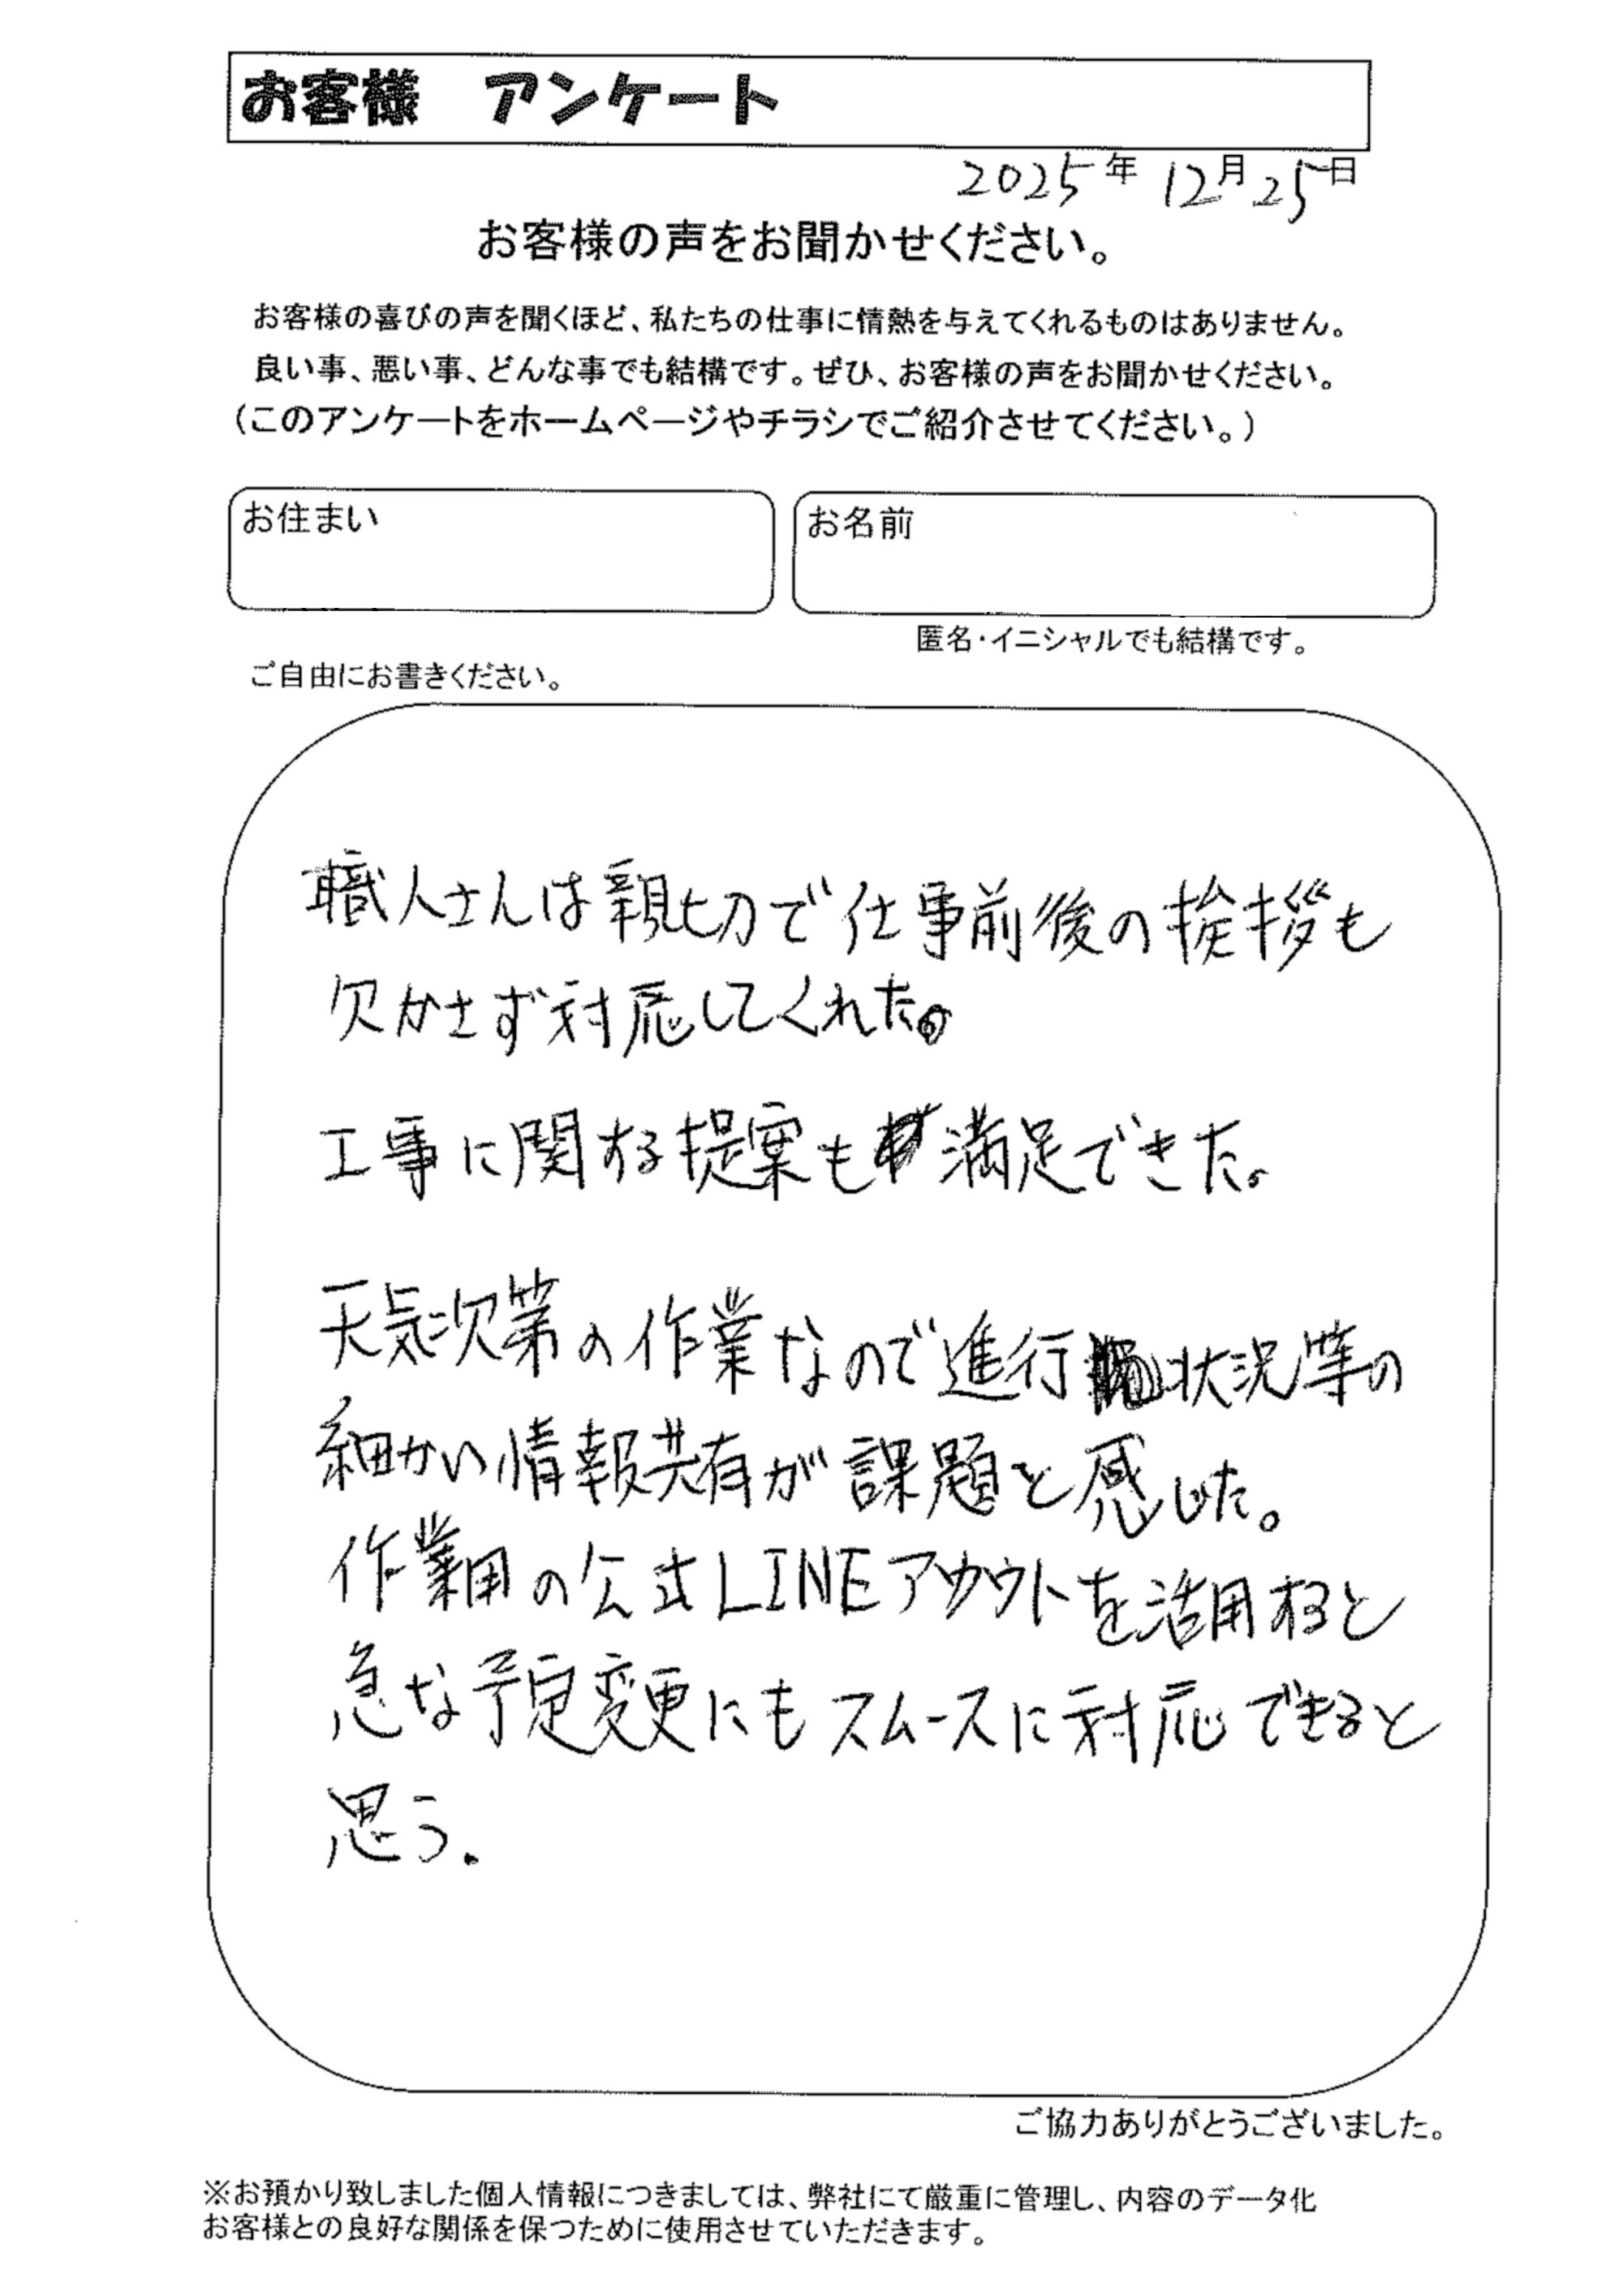 お客様 アンケート
2025年 12月25日
お客様の声をお聞かせください。
お客様の喜びの声を聞くほど、私たちの仕事に情熱を与えてくれるものはありません。
良い事、悪い事、どんな事でも結構です。ぜひ、お客様の声をお聞かせください。
(このアンケートをホームページやチラシでご紹介させてください。)
お住まい
お名前
匿名・イニシャルでも結構です。
ご自由にお書きください。
職人さんは親切で仕事前後の挨拶も
欠かさず対応してくれた。
工事に関する提案も満足できた。
天気次第の作業なので進行状況等の
細かい情報共有が課題と感じた。
作業用の公式LINEアカウントを活用すると
急な予定変更にもスムースに対応できると
思う.
ご協力ありがとうございました。
※お預かり致しました個人情報につきましては、弊社にて厳重に管理し、内容のデータ化
お客様との良好な関係を保つために使用させていただきます。